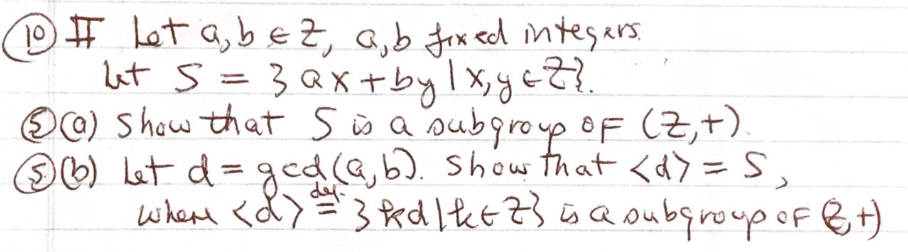 ⑩ II Let a, b ∈ Z, a, b fixed integers.
Let S = {ax + by | x, y ∈ Z}.
⑤ (a) Show that S is a subgroup OF (Z, +).
⑤ (b) Let d = gcd(a, b). Show that <d> = S,
where <d> def. = {kd | k ∈ Z} is a subgroup OF (Z, +)